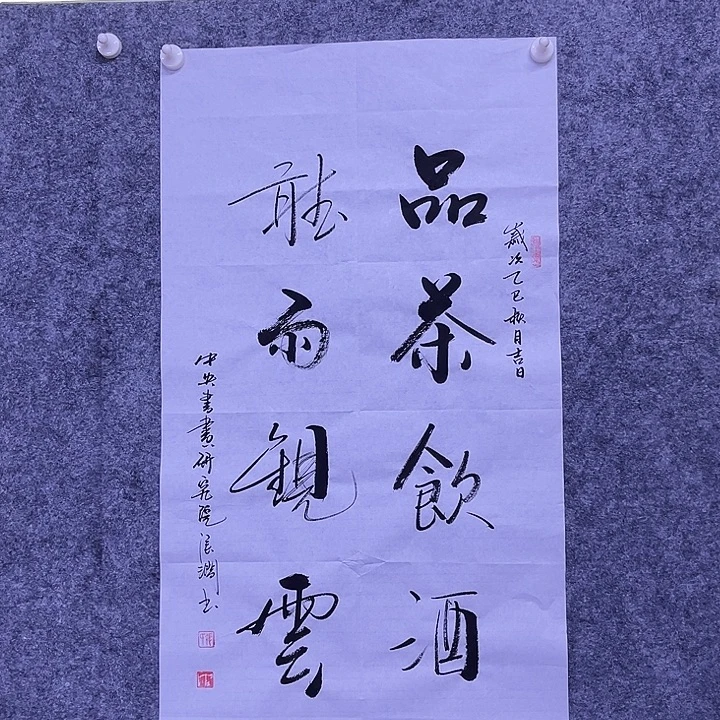 歲次乙巳秋月吉日
品茶飲酒
聽雨觀雲
中央書畫研究院浪潤書